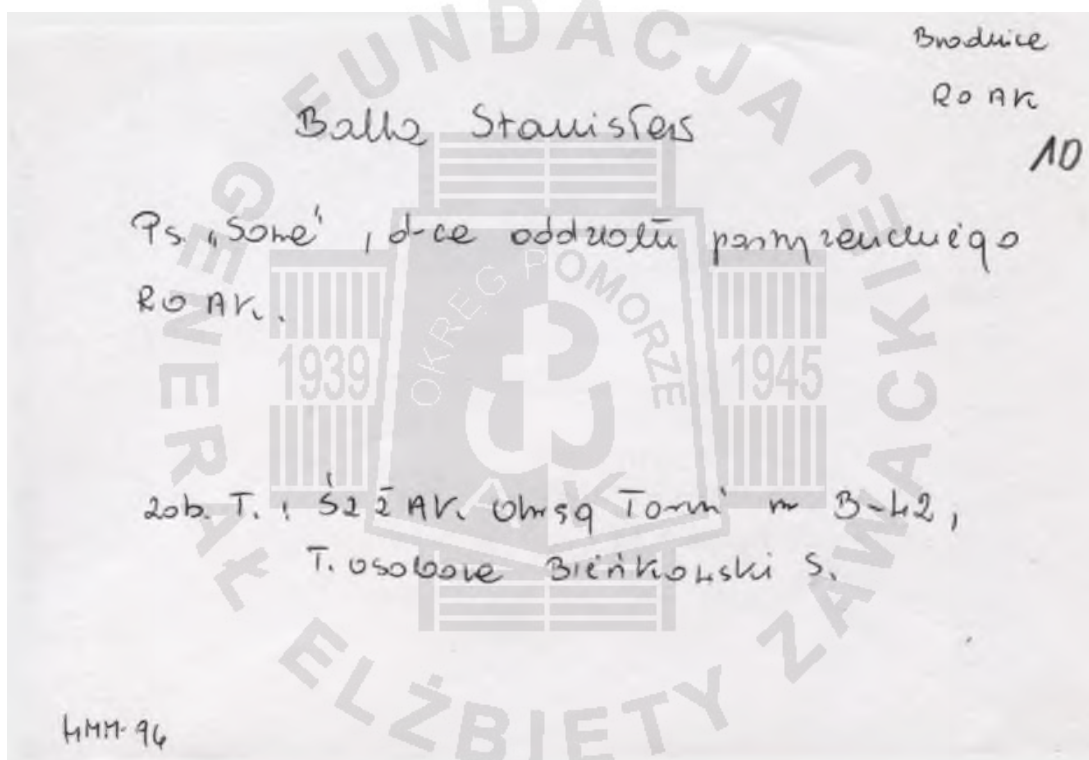 Brodnica
RO AK
10
Balla Stanisław
Ps. "Sowa", d-ca oddziału partyzanckiego
RO AK.
zob. T.: ŚZŻAK. Okręg Toruń m B-42,
T. osobowa Bieńkowski S.
HMM-96
FUNDACJA GENERAŁ ELŻBIETY ZAWACKIEJ
OKRĘG POMORZE
1939
1945
AK